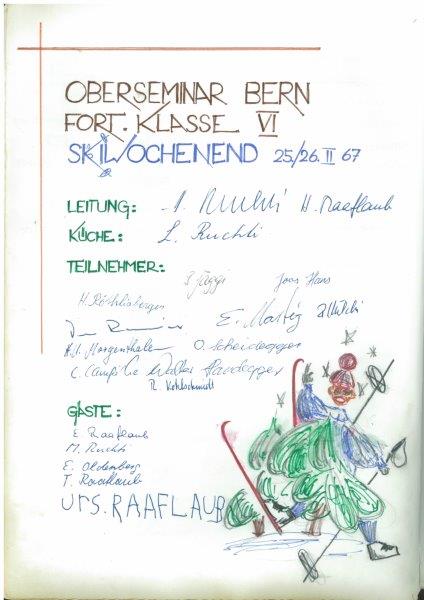 OBERSEMINAR BERN
FORT. KLASSE VI
SKIWOCHENEND 25/26. II 67
LEITUNG: H. Raaflaub
KÜCHE: L. Ruchti
TEILNEHMER:
B. Jäggi Joos Hans
H. Röthlisberger
E. Martig
H.U. Morgenthaler O. Scheidegger
Walter
R. Kohlschmidt
GÄSTE:
E. Raaflaub
M. Ruchti
E. Oldenberg
T. Raaflaub
URS. RAAFLAUB